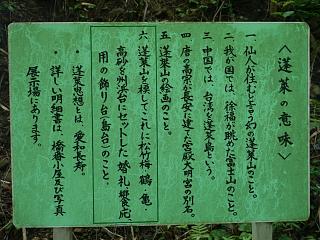 〈蓬莱の意味〉
一、仙人が住むと言う幻の蓬莱山のこと。
二、我が国では、徐福が眺めた富士山のこと。
三、中国では、台湾を蓬莱島という。
四、唐の高宗が長安に建てた宮殿大明宮の別名。
五、蓬莱山の絵画のこと。
六、蓬莱山を模してこれに松竹梅、鶴、亀・
高砂を州浜台にセットした婚礼、饗応
用の飾り台(島台)のこと。
・蓬莱思想とは、愛和長寿。
・詳しい明細書は、橋番小屋及び写真
展示場にあります。